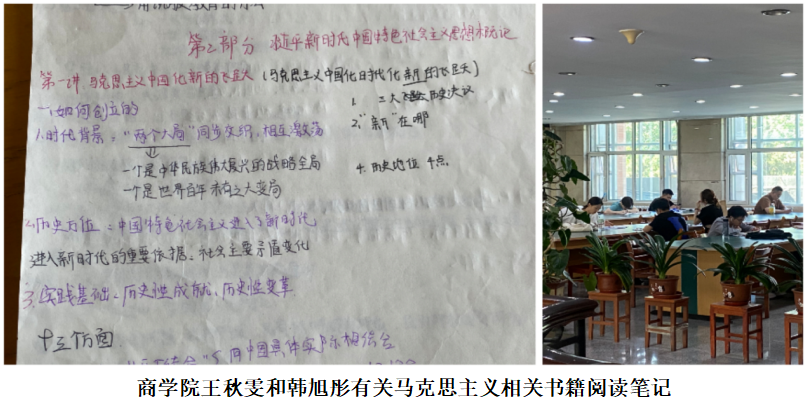 第二部分 习近平新时代中国特色社会主义思想概论
第一讲 马克思主义中国化新的飞跃 (马克思主义中国化时代化新的飞跃)
一、如何创立的
1. 三大飞跃 历史决议
1.时代背景:"两个大局"同步交织,相互激荡
2."新"在哪
一个是中华民族伟大复兴的战略全局
4. 历史地位 4点.
一个是世界百年未有之大变局
2.历史方位:中国特色社会主义进入了新时代
进入新时代的重要依据、社会主要矛盾变化
3.实践基础:历史性成就,历史性变革
十三个方面
中国具体实际相结合
商学院王秋雯和韩旭彤有关马克思主义相关书籍阅读笔记